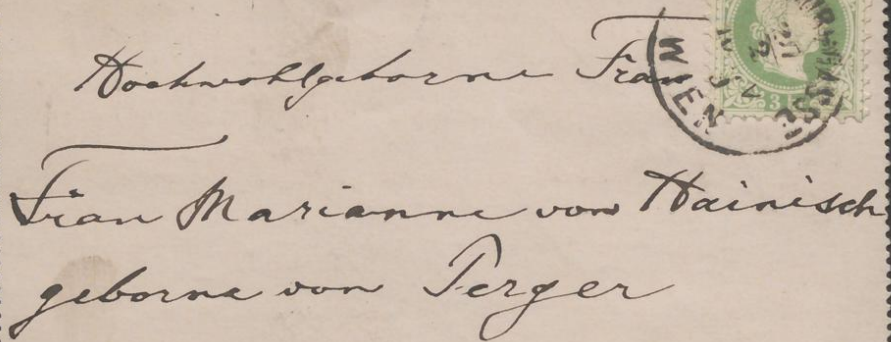 Hochwohlgeborne Frau
Frau Marianne von Hainisch
geborne von Perger
WIEN
3